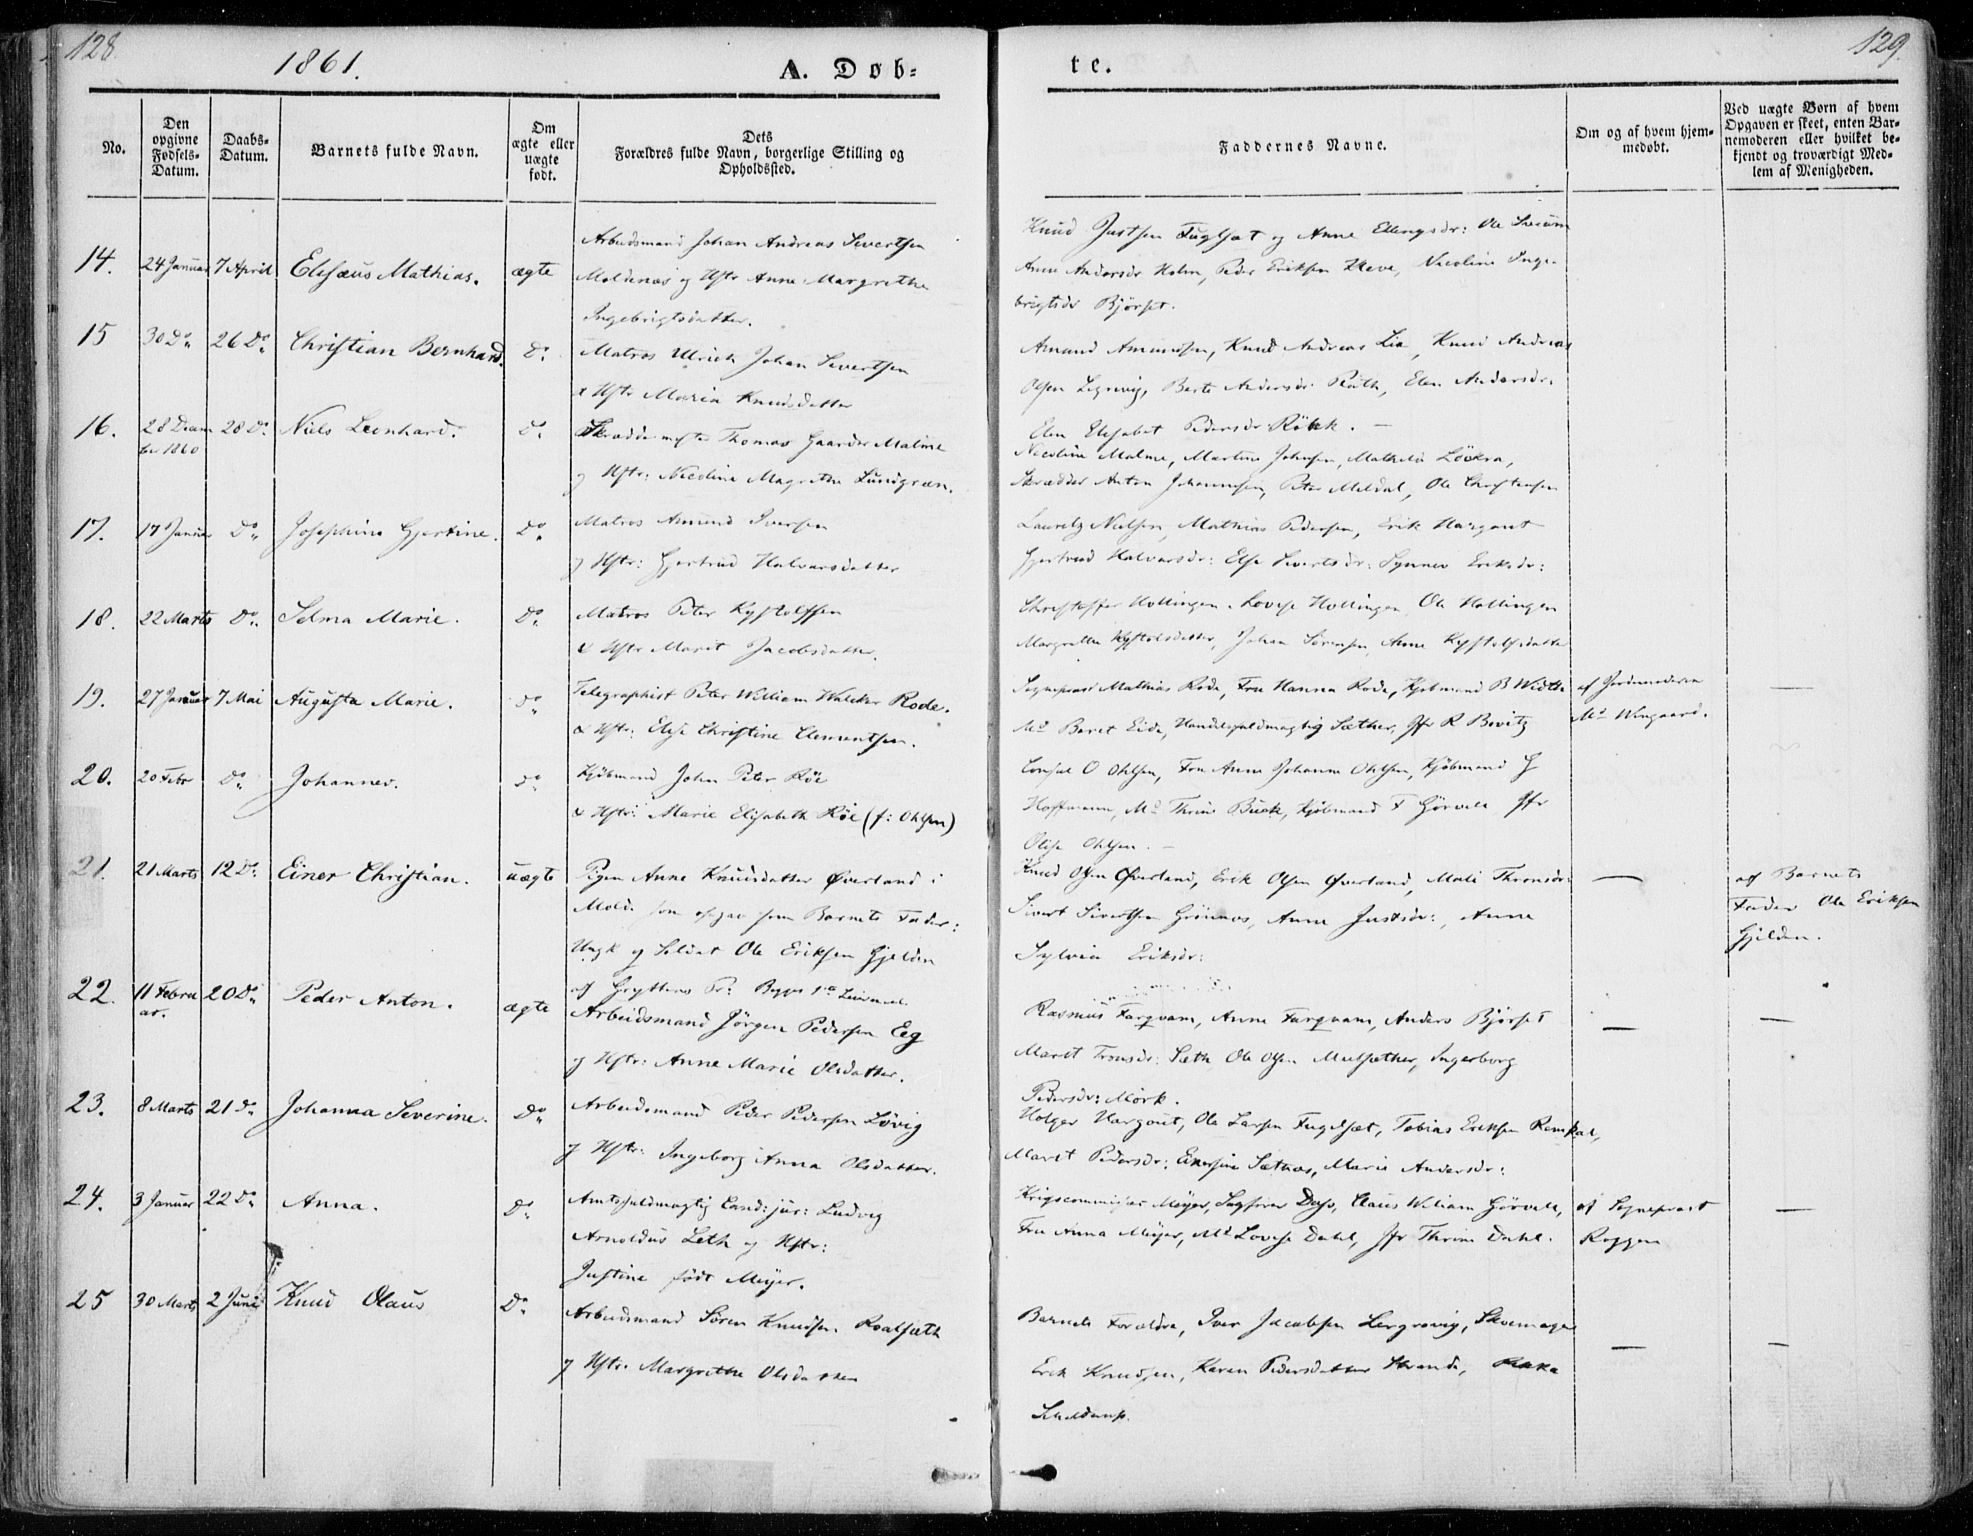 128.
1861.
A. Døb=
te.
129.
No.
Den
opgivne
Fødsels-
Datum.
Daabs-
Datum.
Barnets fulde Navn.
Om
ægte eller
uægte
født.
Dets
Forældres fulde Navn, borgerlige Stilling og
Opholdssted.
Faddernes Navne.
Om og af hvem hjem-
medøbt.
Ved uægte Børn af hvem
Opgaven er skeet, enten Bar-
nemoderen eller hvilket be-
kjendt og troværdigt Med-
lem af Menigheden.
14.
24 Januar
7 April
Elesæus Mathias.
ægte
Arbeidsmand Johan Andreas Sivertsen
Moldenæs og Hstr Anne Margrethe
Ingebrigtsdatter.
Knud Justsen Fuglset og Anne Ellingsdr: Ole
Anne Andersdr Holm, Peder Eriksen Kleve, Nicoline Inge-
brigtsdr Bjørset.
15
30 Do
26 Do
Christian Bernhard.
Do
Matros Ulrich Johan Sivertsen
& Hstr Maria Knudsdatter
Amund Amundsen, Knud Andreas Lia, Knud Andreas
Olsen Legrovig, Berte Andersdr Røth, Elen Andersdr.
Elen Elisabet Pedersdr Röbek. —
16.
28 Decem
ber 1860
28 Do
Niels Leonhard.
Do
Skræddermester Thomas Gaarder Malme
og Hstr: Nicoline Magrethe Lundgren.
Nicoline Malme, Martine Johnsen, Mathilde Löckra,
Skrædder Anton Johannesen, Peter Meldal, Ole Christensen
17.
17 Januar
Do
Josephine Gjertine.
Do
Matros Amund Iversen
og Hstr: Gjertrud Halvorsdatter
Lauritz Nielsen, Mathias Pedersen, Erik Hargaut
Gjertrud Halvorsdr: Else Sivertsdr: Synnev Eriksdr:
18.
22 Marts
Do
Selma Marie.
Do
Matros Peter Kystolfsen
& Hstr Marit Jacobsdatter.
Christoffer Hollingen, Lovise Hollingen, Ole Hollingen
Margrethe Kystolsdatter, Johan Sørensen, Anne Kystolfsdatter
19.
27 Januar
7 Mai
Augusta Marie.
Do
Telegraphist Peter William Walcker Rode.
& Hstr: Elise Christine Clementsen.
Sogneprest Mathias Rode, Fru Hanna Rode, Kjøbmand B Widthe
Md Beret Eide, Handelsfuldmægtig Sæther, Jfr R Bovitz
af Jordemoderen
Md Wingaard.
—
20.
20 Febr
Do
Johannes.
Do
Kjøbmand John Peter Röe
& Hstr: Marie Elisabeth Röe (f: Ohlsen)
Consul O Ohlsen, Fru Anne Johanne Ohlsen, Kjøbmand G
Hoffmann, Md Thrine Buck, Kjøbmand F Görvell Jfr
Olise Ohlsen. —
21.
21 Marts
12 Do
Einer Christian.
uægte
Pigen Anne Knudsdatter Øverland i
Molde som opgav som Barnets Fader:
Ungk og Soldat Ole Eriksen Gjelden
af Gryttens Pr:
Knud Olsen Øverland, Erik Olsen Øverland, Mali Thronsdr:
Sivert Sivertsen Grönnes, Anne Justsdr:, Anne
Sylvia Eriksdr:
—
af Barnets
Fader Ole Eriksen
Gjelden.
22.
11 Febru
ar.
20 Do
Peder Anton.
ægte
Arbeidsmand Jörgen Pedersen Eeg
og Hstr: Anne Marie Olsdatter.
Rasmus Farqvam, Anne Farqvam, Anders Bjørset
Marit Tronsdr: Sæth Ole Olsen Mulsæther, Ingeborg
Pedersdr: Mørk.
—
—
23.
8 Marts
21 Do
Johanna Severine.
Do
Arbeidsmand Peder Pedersen Lövig
og Hstr: Ingeborg Anna Olsdatter.
Holger Hargaut, Ole Larsen Fugelsæt, Tobias Eriksen
Marit Pedersdr: Sætnes, Marie Andersdr:
24.
3 Januar
22 Do
Anna.
Do
Amtsfuldmægtig Cand: jur: Ludvig
Arnoldus Leth og Hstr:
Justine født Meyer.
Krigscommissær Meyer, Sagfører Dass, Claus William Görvell,
Fru Anna Meyer, Md Lovise Dahl, Jfr Thrine Dahl.
af Sogneprest
Roggen
—
25
30 Marts
2 Juni
Knud Olaus
Do
Arbeidsmand Sören Knudsen Roalsæth
og Hstr. Margrethe Olsdatter
Barnets Forældre, Iver Jacobsen Lergrovig, Skoemager
Erik Knudsen, Karen Pedersdatter Strande,
—
—